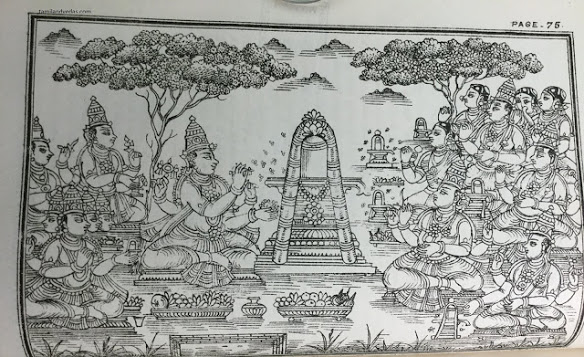 tamilandvedas.com
PAGE-75.